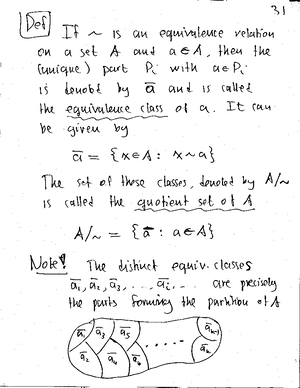 31
Def If ~ is an equivalence relation
on a set A and a∈A, then the
(unique) part Pᵢ with a∈Pᵢ
is denoted by a̅ and is called
the equivalence class of a. It can
be given by
a̅ = {x∈A : x~a}
The set of those classes, denoted by A/~
is called the quotient set of A
A/~ = {a̅ : a∈A}
Note! The distinct equiv. classes
a̅₁, a̅₂, a̅₃, ... a̅ᵢ ... are precisely
the parts forming the partition of A
a̅₁ a̅₃ a̅₅ ..... a̅ₖ₋₁
a̅₂ a̅₄ a̅₆ a̅ₖ